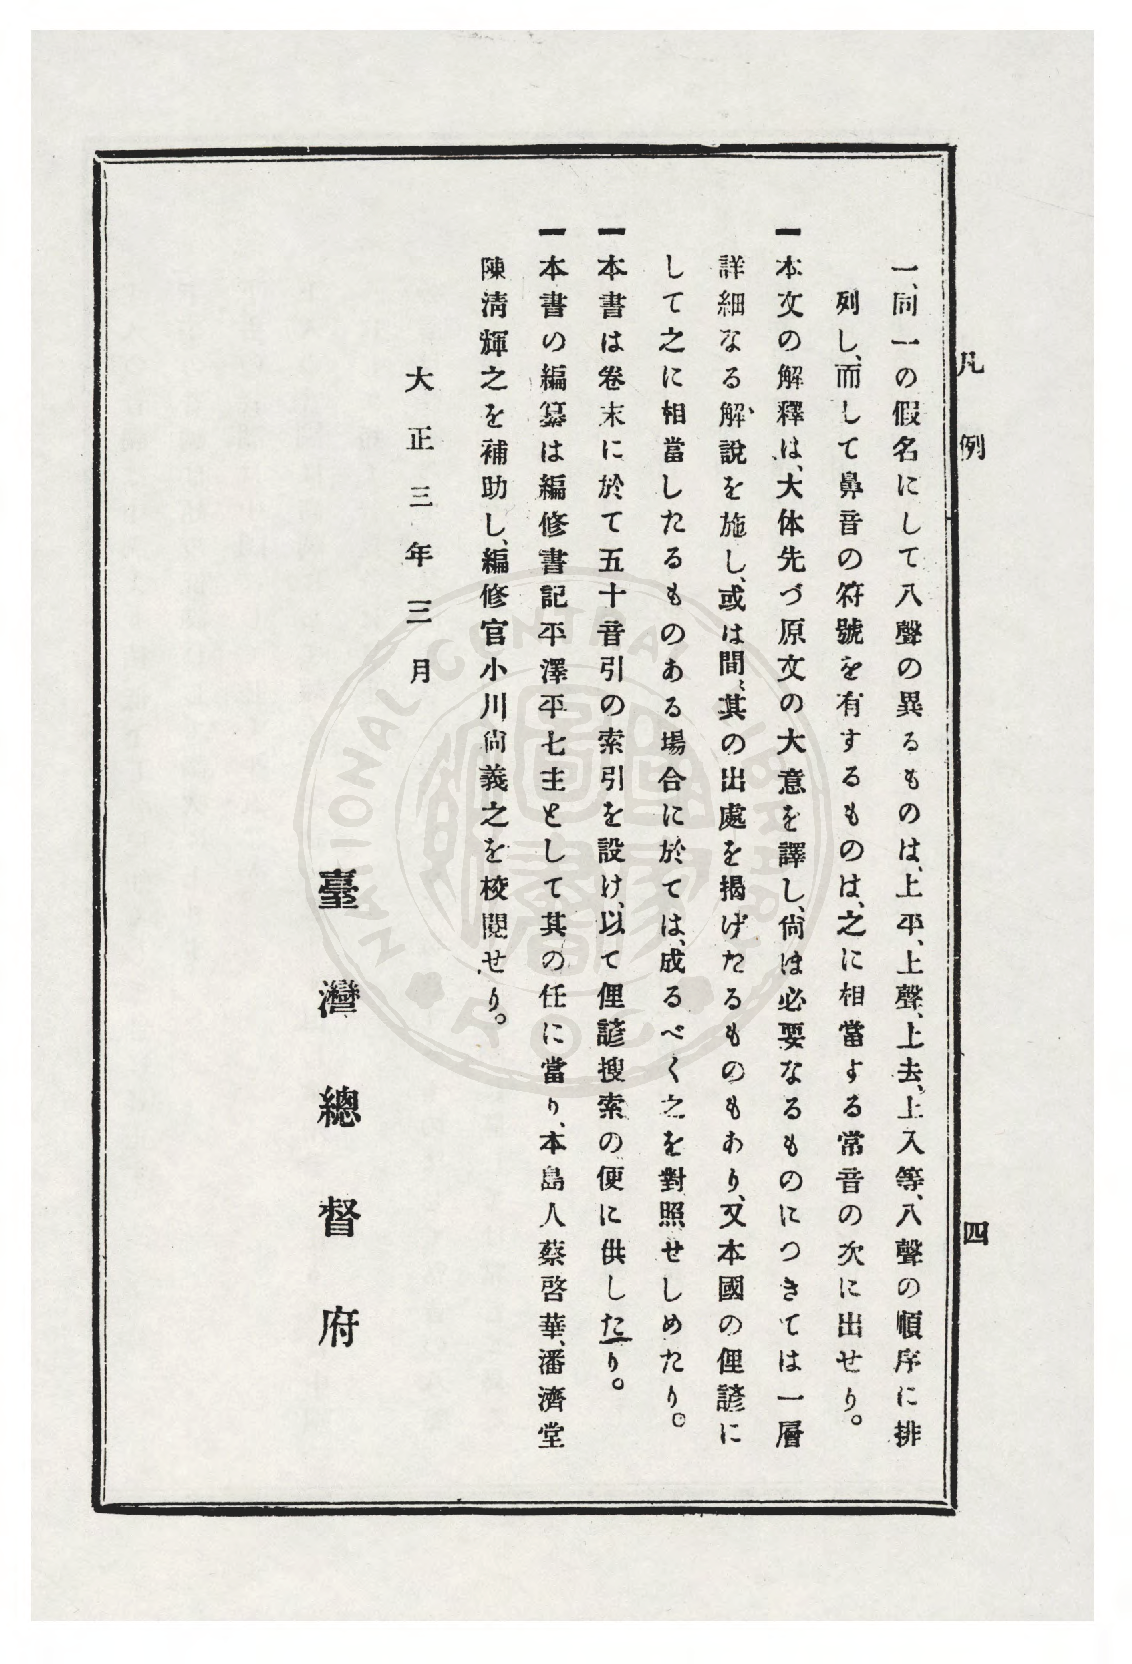 凡例
四
一、同一の假名にして八聲の異るものは、上平、上聲、上去、上入等、八聲の順序に排
列し、而して鼻音の符號を有するものは、之に相當する常音の次に出せり。
一本文の解釋は、大体先づ原文の大意を譯し、尙ほ必要なるものにつきては一層
詳細なる解說を施し、或は間〻其の出處を揭げたるものもあり、又本國の俚諺に
して之に相當したるものある場合に於ては、成るべく之を對照せしめたり。
一本書は卷末に於て五十音引の索引を設け、以て俚諺搜索の便に供したり。
一本書の編纂は編修書記平澤平七主として其の任に當り、本島人蔡啓華、潘濟堂
陳清輝之を補助し、編修官小川尙義之を校閱せり。
大正三年三月
臺灣總督府
NATIONAL CENTRAL LIBRARY
ROC
國家圖書